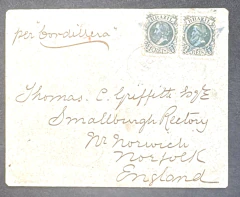 per "Cordillera"
Thomas. C. Griffith Esqre
Smallburgh Rectory
Nr Norwich
Norfolk
England